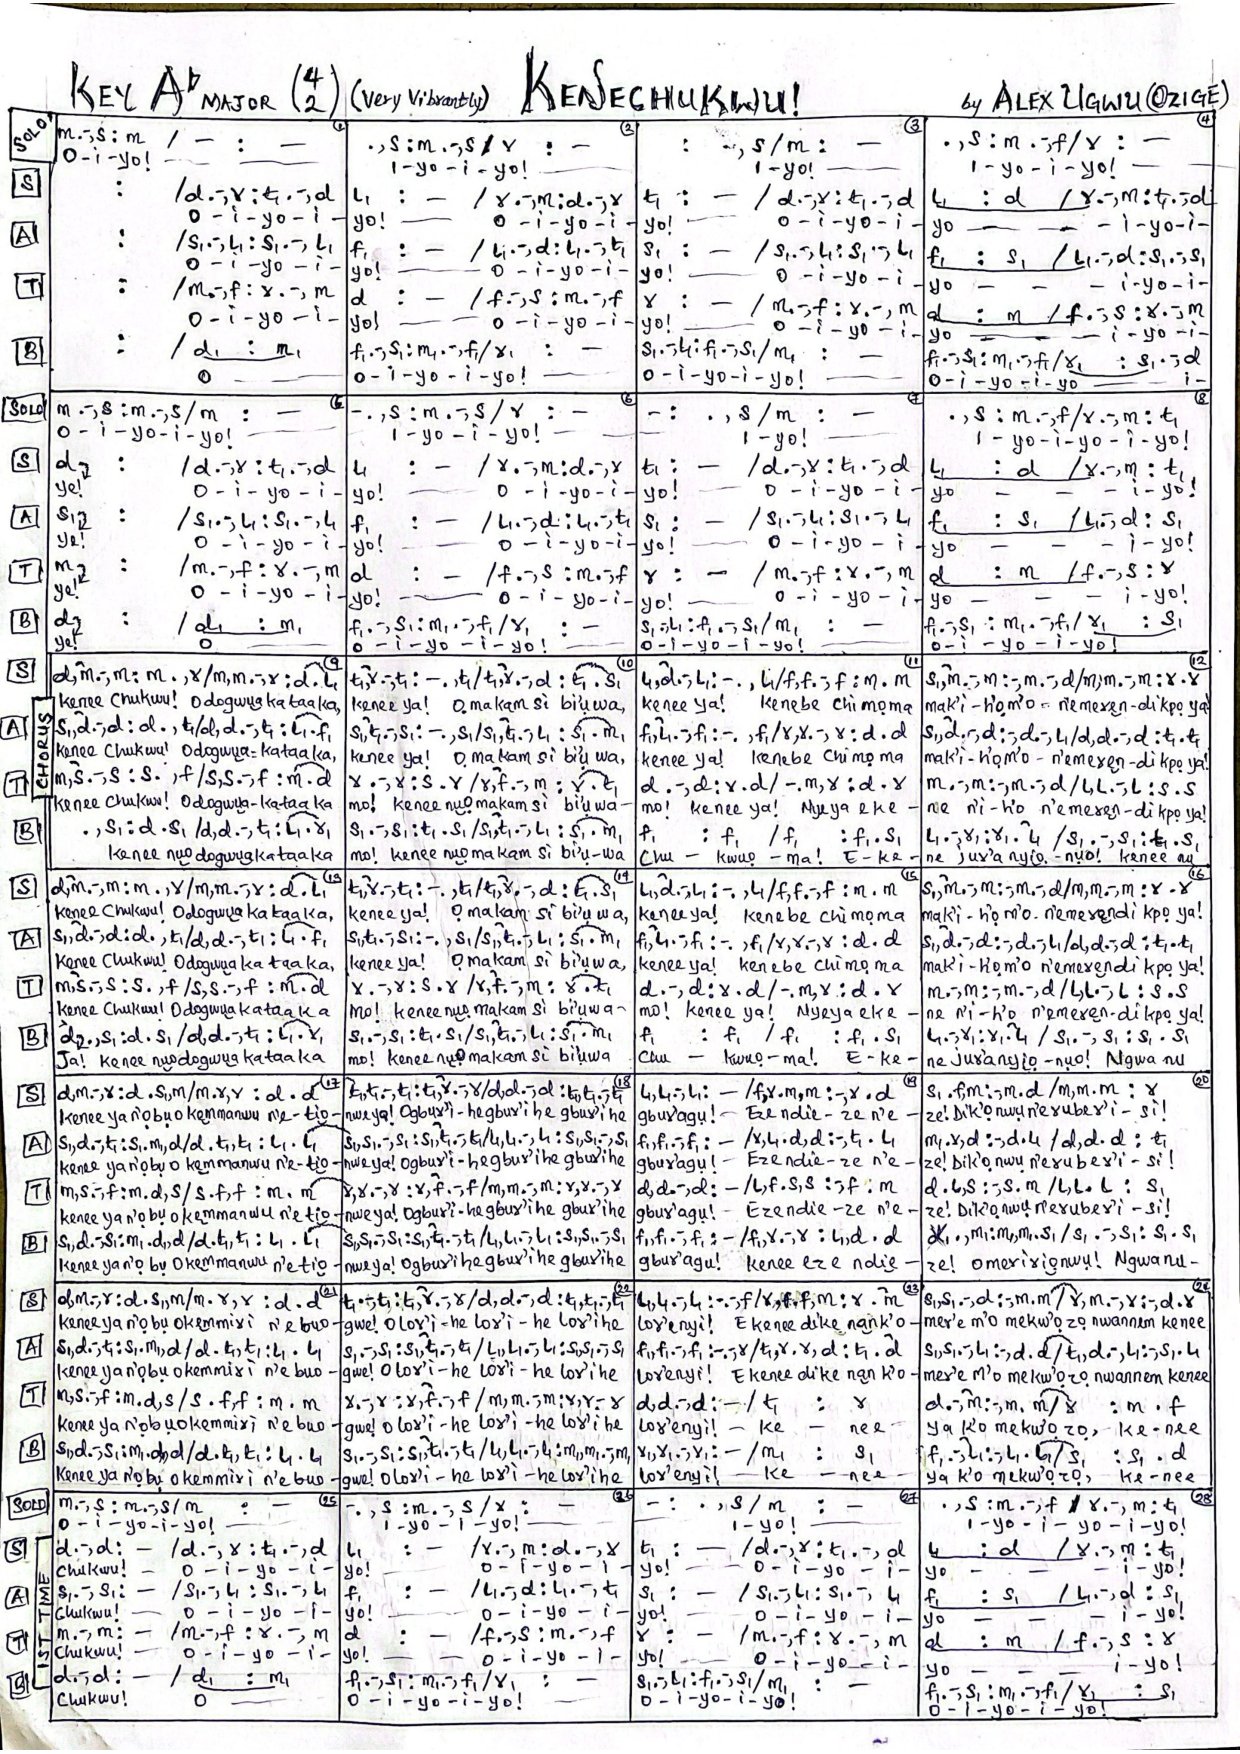 KEY A♭ MAJOR (4/2) (Very Vibrantly) KENECHUKWU! by ALEX UGWU (OZIGE)
SOLO
m.-,s:m / - : - ① .,s:m.-,s/r : - ② : -,s/m: - ③ .,s:m.-,f/r : - ④
O-i-yo! I-yo-i-yo! I-yo! I-yo-i-yo!
S : /d.-,r:t₁.-,d l₁ : - /r.-,m:d.-,r t₁ : - /d.-,r:t₁.-,d l₁ : d /r.-,m:t₁.-,d
O-i-yo-i- yo! O-i-yo-i- yo! O-i-yo-i- yo - - - i-yo-i-
A : /s₁.-,l₁:s₁.-,l₁ f₁ : - /l₁.-,d:l₁.-,t₁ s₁ : - /s₁.-,l₁:s₁.-,l₁ f₁ : s₁ /l₁.-,d:s₁.-,s₁
O-i-yo-i- yo! O-i-yo-i- yo! O-i-yo-i- yo - - - i-yo-i-
T : /m.-,f:r.-,m d : - /f.-,s:m.-,f r : - /m.-,f:r.-,m d : m /f.-,s:r.-,m
O-i-yo-i- yo! O-i-yo-i- yo! O-i-yo-i- yo - i-yo-i-
B : /d₁ : m₁ f₁.-,s₁:m₁.-,f₁/r₁ : - s₁.-,l₁:f₁.-,s₁/m₁ : - f₁.-,s₁:m₁.-,f₁/r₁ : s₁.-,d
O O-i-yo-i-yo! O-i-yo-i-yo! O-i-yo-i-yo i-
SOLO m.-,s:m.-,s/m : - ⑤ -.,s:m.-,s/r : - ⑥ -: .,s/m : - ⑦ .,s:m.-,f/r.-,m:t₁ ⑧
O-i-yo-i-yo! I-yo-i-yo! I-yo! I-yo-i-yo-i-yo!
S d : /d.-,r:t₁.-,d l₁ : - /r.-,m:d.-,r t₁ : - /d.-,r:t₁.-,d l₁ : d /r.-,m:t₁
ye! O-i-yo-i- yo! O-i-yo-i- yo! O-i-yo-i- yo - - - i-yo!
A s₁ : /s₁.-,l₁:s₁.-,l₁ f₁ : - /l₁.-,d:l₁.-,t₁ s₁ : - /s₁.-,l₁:s₁.-,l₁ f₁ : s₁ /l₁.-,d:s₁
ye! O-i-yo-i- yo! O-i-yo-i- yo! O-i-yo-i yo - - - i-yo!
T m : /m.-,f:r.-,m d : - /f.-,s:m.-,f r : - /m.-,f:r.-,m d : m /f.-,s:r
ye! O-i-yo-i- yo! O-i-yo-i- yo! O-i-yo-i- yo - - - i-yo!
B d : /d₁ : m₁ f₁.-,s₁:m₁.-,f₁/r₁ : - s₁.-,l₁:f₁.-,s₁/m₁ : - f₁.-,s₁:m₁.-,f₁/r₁ : s₁
ye! O O-i-yo-i-yo! O-i-yo-i-yo! O-i-yo-i-yo!
CHORUS
S d,m.-,m:m.,r/m,m.-,r:d.l₁ ⑨ t₁,r.-,t₁:-.,t₁/t₁,r.-,d:t₁.s₁ ⑩ l₁,d.-,l₁:-.,l₁/f,f.-,f:m.m ⑪ s₁,m.-,m:-,m.-,d/m,m.-,m:r.r ⑫
Kenee Chukwu! Odogwu kataaka, Kenee ya! Omakam si biụwa, kenee ya! Kenebe Chimọma mak'i-họm'o - n'emeren-dikpọ ya!
A s₁,d.-,d:d.,t₁/d,d.-,t₁:l₁.f₁ s₁,t₁.-,s₁:-.,s₁/s₁,t₁.-,l₁:s₁.m₁ f₁,l₁.-,f₁:-.,f₁/r,r.-,r:d.d s₁,d.-,d:-,d.-,l₁/d,d.-,d:t₁.t₁
Kenee Chukwu! Odogwụa-kataaka, kenee ya! Omakam si biụ wa, kenee ya! kenebe Chimọma mak'i-họm'o - n'emeren-dikpọ ya!
T m,s.-,s:s.,f/s,s.-,f:m.d r.-,r:s.r/r,f.-,m:r.t₁ d.-,d:r.d/-.m,r:d.r m.-,m:-,m.-,d/l,l.-,l:s.s
Kenee Chukwu! Odogwụa-kataaka mo! kenee nụọmakam si bi'ụwa- mo! kenee ya! Nyeya eke- ne n'i-h'o n'emeren-dikpọ ya!
B .,s₁:d.s₁/d,d.-,t₁:l₁.r₁ s₁.-,s₁:t₁.s₁/s₁,t₁.-,l₁:s₁.m₁ f₁ : f₁ /f₁ :f₁.s₁ l₁.-,r₁:r₁.l₁/s₁.-,s₁:t₁.s₁
kenee nụọ dogwụakataaka mo! kenee nụọmakam si bi'ụ-wa Chu - kwuo -ma! E-ke- ne jur'anyịọ-nụọ! kenee nụ
S d,m.-,m:m.,r/m,m.-,r:d.l₁ ⑬ t₁,r.-,t₁:-.,t₁/t₁,r.-,d:t₁.s₁ ⑭ l₁,d.-,l₁:-.,l₁/f,f.-,f:m.m ⑮ s₁,m.-,m:-,m.-,d/m,m.-,m:r.r ⑯
Kenee Chukwu! Odogwụa kataaka, kenee ya! Omakam si bi'ụ wa, kenee ya! kenebe Chimọma mak'i-họm'o - n'emerendi kpọ ya!
A s₁,d.-,d:d.,t₁/d,d.-,t₁:l₁.f₁ s₁,t₁.-,s₁:-.,s₁/s₁,t₁.-,l₁:s₁.m₁ f₁,l₁.-,f₁:-.,f₁/r,r.-,r:d.d s₁,d.-,d:-,d.-,l₁/d,d.-,d:t₁.t₁
Kenee Chukwu! Odogwụa kataaka, kenee ya! Omakam si bi'ụwa, kenee ya! kenebe Chimọma mak'i-họm'o n'emerendi kpọ ya!
T m,s.-,s:s.,f/s,s.-,f:m.d r.-,r:s.r/r,f.-,m:r.t₁ d.-,d:r.d/-.m,r:d.r m.-,m:-,m.-,d/l,l.-,l:s.s
Kenee Chukwu! Odogwụakataaka mo! kenee nụọmakam si bi'ụwa- mo! kenee ya! Nyeya eke- ne n'i-h'o n'emeren-dikpọ ya!
B d,s₁:d.s₁/d,d.-,t₁:l₁.r₁ s₁.-,s₁:t₁.s₁/s₁,t₁.-,l₁:s₁.m₁ f₁ : f₁ /f₁ :f₁.s₁ l₁.-,r₁:r₁.l₁/s₁.-,s₁:s₁.s₁
Ja! Kenee nụọdogwụakataaka mo! kenee nụọmakam si bi'ụwa Chu - kwuo-ma! E-ke- ne jur'anyịọ-nụọ! Ngwa nu
S d,m.-,r:d.s₁,m/m.r,r:d.d ⑰ t₁,t₁.-,t₁:t₁,r.-,r/d,d.-,d:t₁,t₁.-,t₁ ⑱ l₁,l₁.-,l₁:-/f,r.m,m:-,r.d ⑲ s₁.f,m:-,m.d/m,m.m:r ⑳
Kenee ya n'ọbụ o kemmanwu n'e-tiọ- nwe ya! Ogbur'i-hegbur'ihe gbur'ihe gbur'agụ! - Ezendie-ze n'e- ze! Dik'ọnwụ n'eruber'i-si!
A s₁,d.-,t₁:s₁.m₁,d/d.t₁,t₁:l₁.l₁ s₁,s₁.-,s₁:s₁,t₁.-,t₁/l₁,l₁.-,l₁:s₁,s₁.-,s₁ f₁,f₁.-,f₁:-/r,l₁.d,d:-,t₁.l₁ m₁.r,d:-,d.l₁/d,d.d:t₁
Kenee ya n'ọbụ o kemmanwu n'e-tiọ- nwe ya! Ogbur'i-hegbur'ihe gbur'ihe gbur'agụ! - Ezendie-ze n'e- ze! Dik'ọnwụ n'eruber'i-si!
T m,s.-,f:m.d,s/s.f,f:m.m r,r.-,r:r,f.-,f/m,m.-,m:r,r.-,r d,d.-,d:-/l₁,f.s,s:-,f.m d.l,s:-,s.m/l,l.l:s₁
kenee ya n'ọbụ o kemmanwu n'e tiọ- nwe ya! Ogbur'i-hegbur'ihe gbur'ihe gbur'agụ! - Ezendie-ze n'e- ze! Dik'ọnwụ n'eruber'i-si!
B s₁,d.-,s₁:m₁.d,d/d.t₁,t₁:l₁.l₁ s₁,s₁.-,s₁:s₁,t₁.-,t₁/l₁,l₁.-,l₁:s₁,s₁.-,s₁ f₁,f₁.-,f₁:-/f₁,r.-,r:l₁,d.d .,m₁:m₁,m₁.s₁/s₁.-,s₁:s₁.s₁
Kenee ya n'ọ bụ Okemmanwu n'e tiọ- nwe ya! Ogbur'ihegbur'ihe gbur'ihe gbur'agụ! kenee eze ndie- ze! omeririọnwụ! Ngwanu-
S d,m.-,r:d.s₁,m/m.r,r:d.d ㉑ t₁.-,t₁:t₁,r.-,r/d,d.-,d:t₁,t₁.-,t₁ ㉒ l₁,l₁.-,l₁:-.-,f/r,f.f,m:r.m ㉓ s₁,s₁.-,d:m.m/r,m.-,r:-,d.r ㉔
Kenee ya n'ọbụ okemmiri n'e buo- gwe! Olor'i-he lor'i-he lor'ihe lor'enyi! Ekenee dike nank'o- mer'e m'o mekwọzọ nwannem kenee
A s₁,d.-,t₁:s₁.m₁,d/d.t₁,t₁:l₁.l₁ s₁.-,s₁:s₁,t₁.-,t₁/l₁,l₁.-,l₁:s₁,s₁.-,s₁ f₁,f₁.-,f₁:-.-,r/t₁,r.r,d:t₁.d s₁,s₁.-,l₁:-,d.d/t₁,d.-,l₁:-,s₁.l₁
kenee ya n'ọbụ okemmiri n'e buo- gwe! Olor'i-he lor'i-he lor'ihe lor'enyi! Ekenee dike nan k'o- mer'e m'o mekwọzọ nwannem kenee
T m,s.-,f:m.d,s/s.f,f:m.m r.-,r:r,f.-,f/m,m.-,m:r,r.-,r d,d.-,d:-/t₁ : r d.-,m:-,m.m/r :m.f
Kenee ya n'ọbụ okemmiri n'e buo- gwe! Olor'i-he lor'i-he lor'ihe lor'enyi! - ke - nee - ya k'o mekwọzọ, ke-nee
B s₁,d.-,s₁:m₁.d,d/d.t₁,t₁:l₁.l₁ s₁.-,s₁:s₁,t₁.-,t₁/l₁,l₁.-,l₁:m₁,m₁.-,m₁ r₁,r₁.-,r₁:-/m₁ : s₁ f₁.-,l₁:-,l₁.l₁/s₁ :s₁.d
Kenee ya n'ọbụ okemmiri n'e buo- gwe! Olor'i-he lor'i-he lor'ihe lor'enyi! - ke - nee - ya k'o mekwọzọ, ke-nee
SOLO m.-,s:m.-,s/m : - ㉕ -.,s:m.-,s/r : - ㉖ -: .,s/m : - ㉗ .,s:m.-,f/r.-,m:t₁ ㉘
O-i-yo-i-yo! I-yo-i-yo! I-yo! I-yo-i-yo-i-yo!
1ST TIME
S d.-,d: - /d.-,r:t₁.-,d l₁ : - /r.-,m:d.-,r t₁ : - /d.-,r:t₁.-,d l₁ : d /r.-,m:t₁
Chukwu! O-i-yo-i- yo! O-i-yo-i- yo! O-i-yo-i- yo - - - i-yo!
A s₁.-,s₁: - /s₁.-,l₁:s₁.-,l₁ f₁ : - /l₁.-,d:l₁.-,t₁ s₁ : - /s₁.-,l₁:s₁.-,l₁ f₁ : s₁ /l₁.-,d:s₁
Chukwu! O-i-yo-i- yo! O-i-yo-i- yo! O-i-yo-i- yo - - - i-yo!
T m.-,m: - /m.-,f:r.-,m d : - /f.-,s:m.-,f r : - /m.-,f:r.-,m d : m /f.-,s:r
Chukwu! O-i-yo-i- yo! O-i-yo-i- yo! O-i-yo-i- yo - - - i-yo!
B d.-,d: - /d₁ : m₁ f₁.-,s₁:m₁.-,f₁/r₁ : - s₁.-,l₁:f₁.-,s₁/m₁ : - f₁.-,s₁:m₁.-,f₁/r₁ : s₁
Chukwu! O O-i-yo-i-yo! O-i-yo-i-yo! O-i-yo-i-yo!